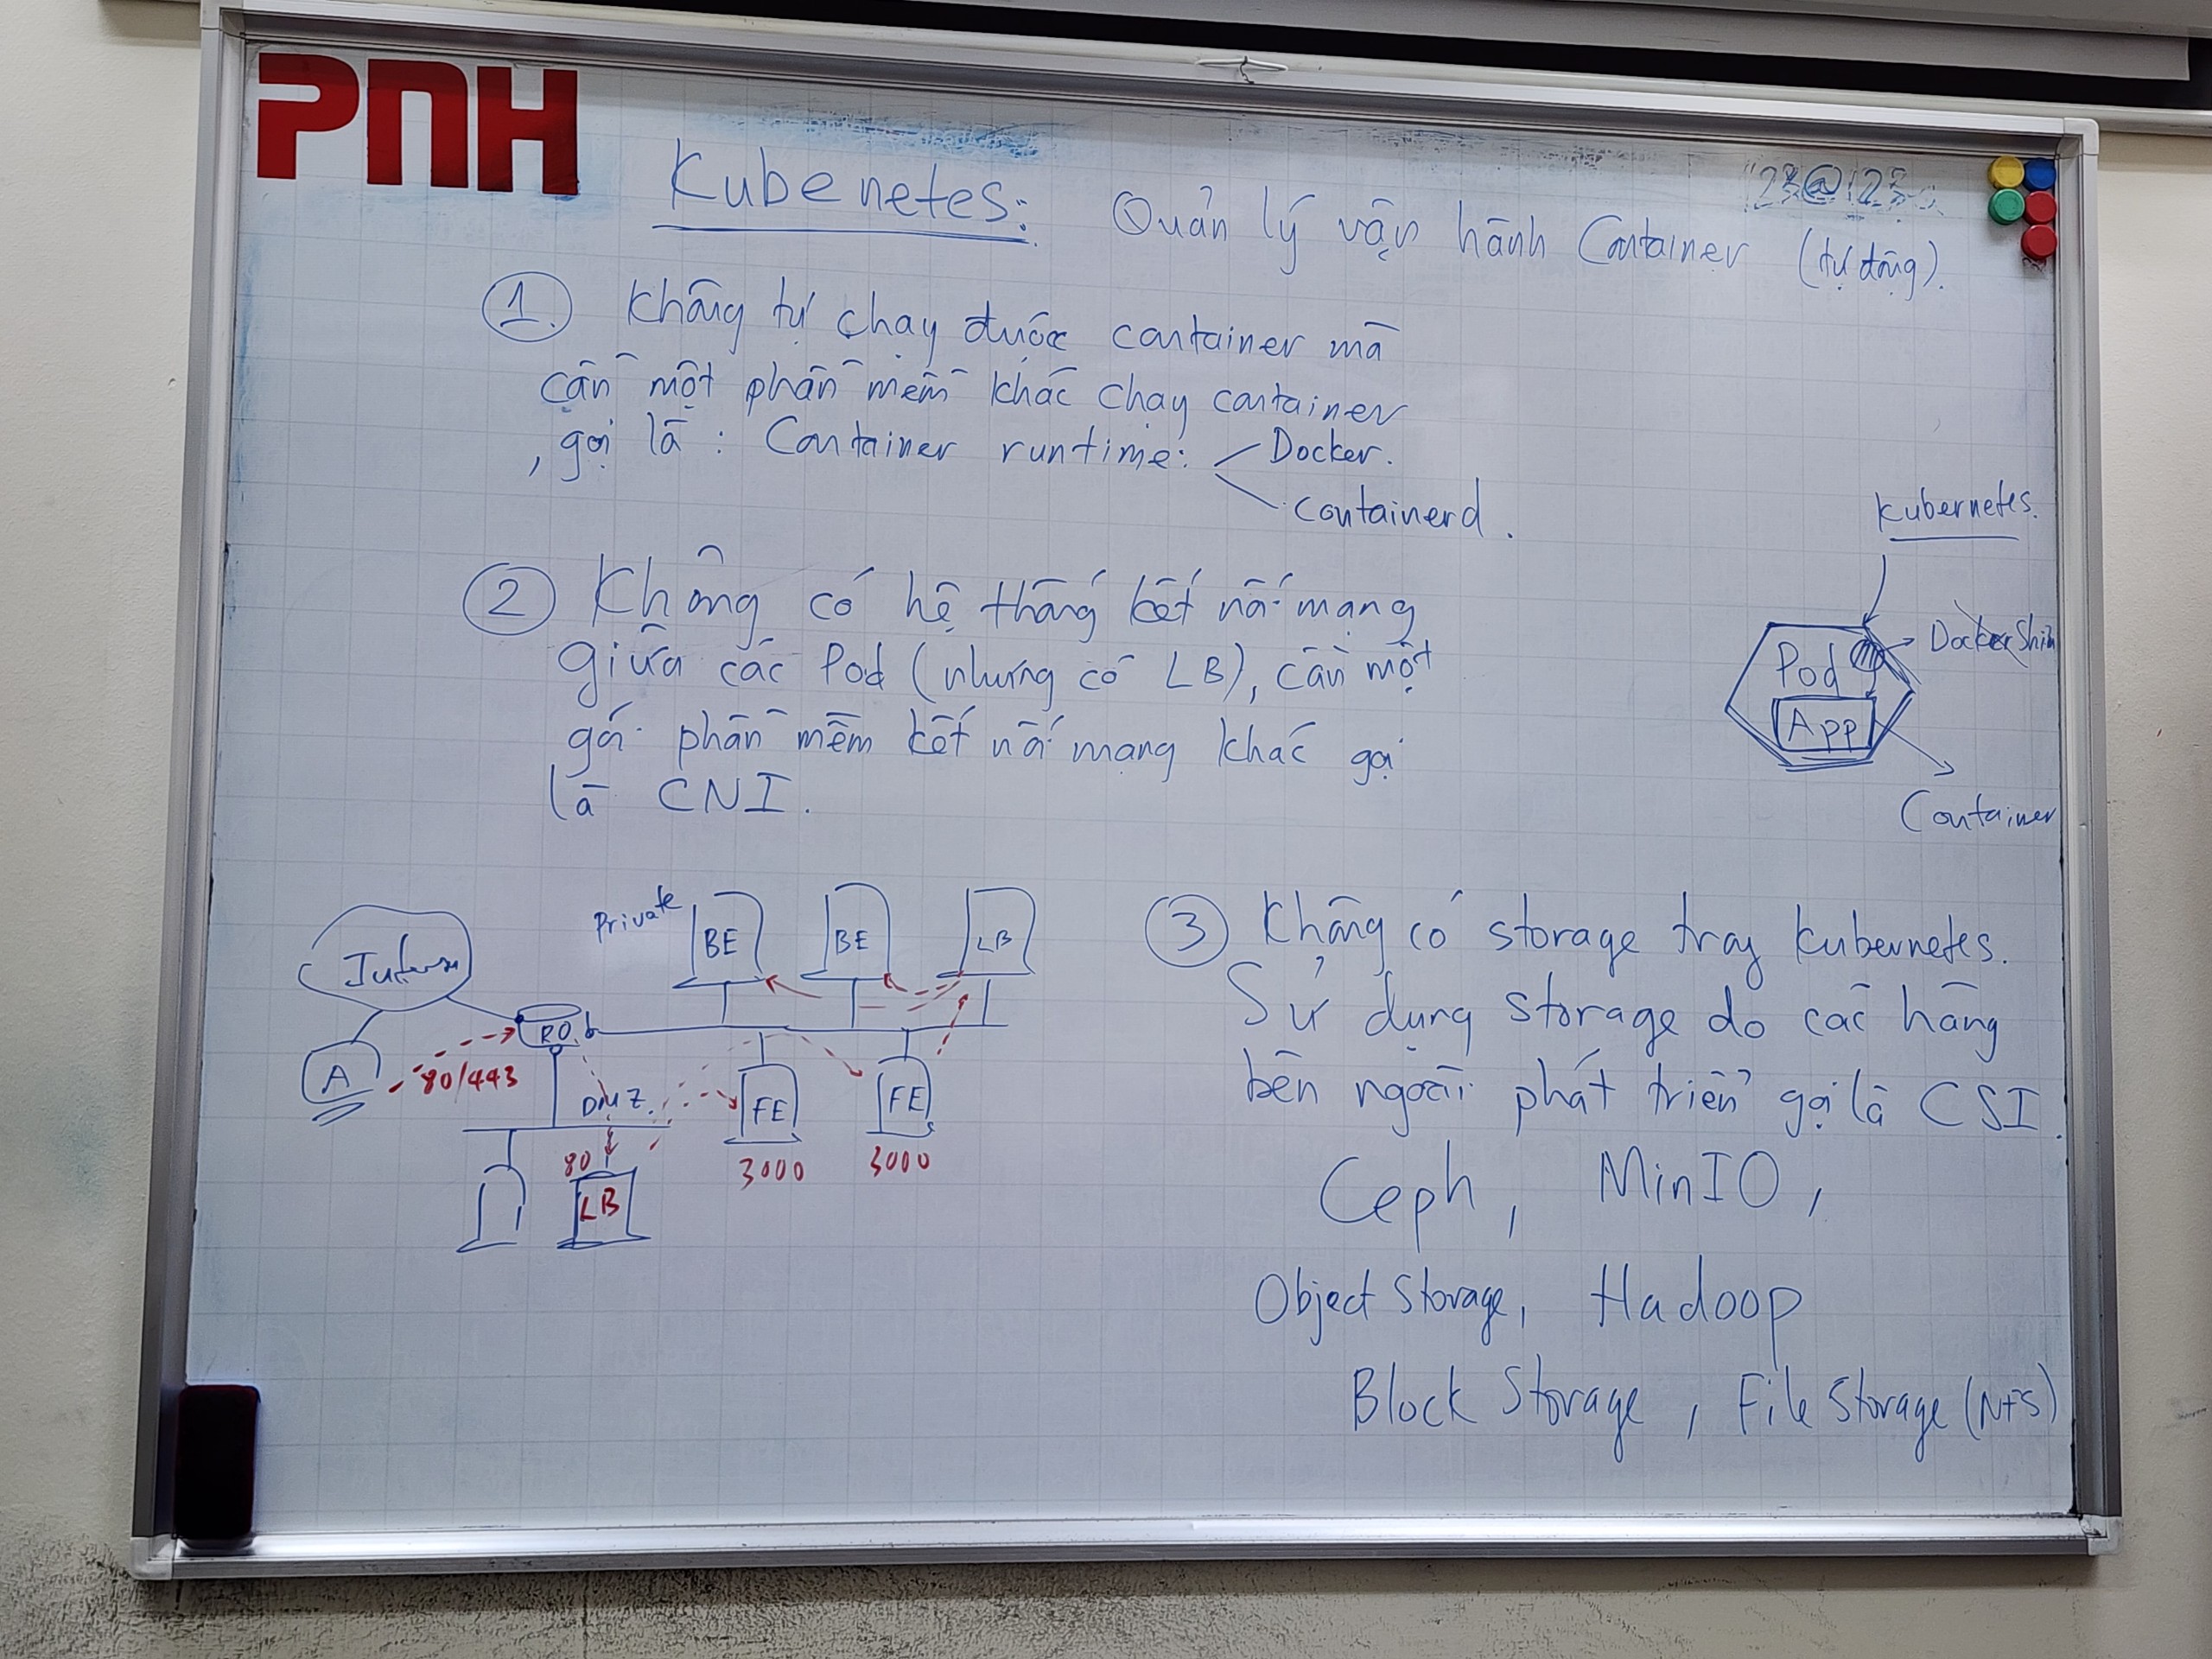 PNH
Kubenetes: Quản lý vận hành Container (tự động).
1. Không tự chạy được container mà
cần một phần mềm khác chạy container
, gọi là : Container runtime: Docker.
containerd.
Kubernetes.
2 Không có hệ thống kết nối mạng
giữa các Pod (nhưng có LB), cần một
gói phần mềm kết nối mạng khác gọi
là CNI.
Pod
DockerShim
App
Container
Private
BE
BE
LB
RO
A
80/443
DMZ.
FE
FE
80
3000
3000
LB
3 Không có storage trong kubernetes.
Sử dụng storage do các hãng
bên ngoài phát triển gọi là CSI.
Ceph, MinIO,
Object Storage, Hadoop
Block Storage, File Storage (NFS)